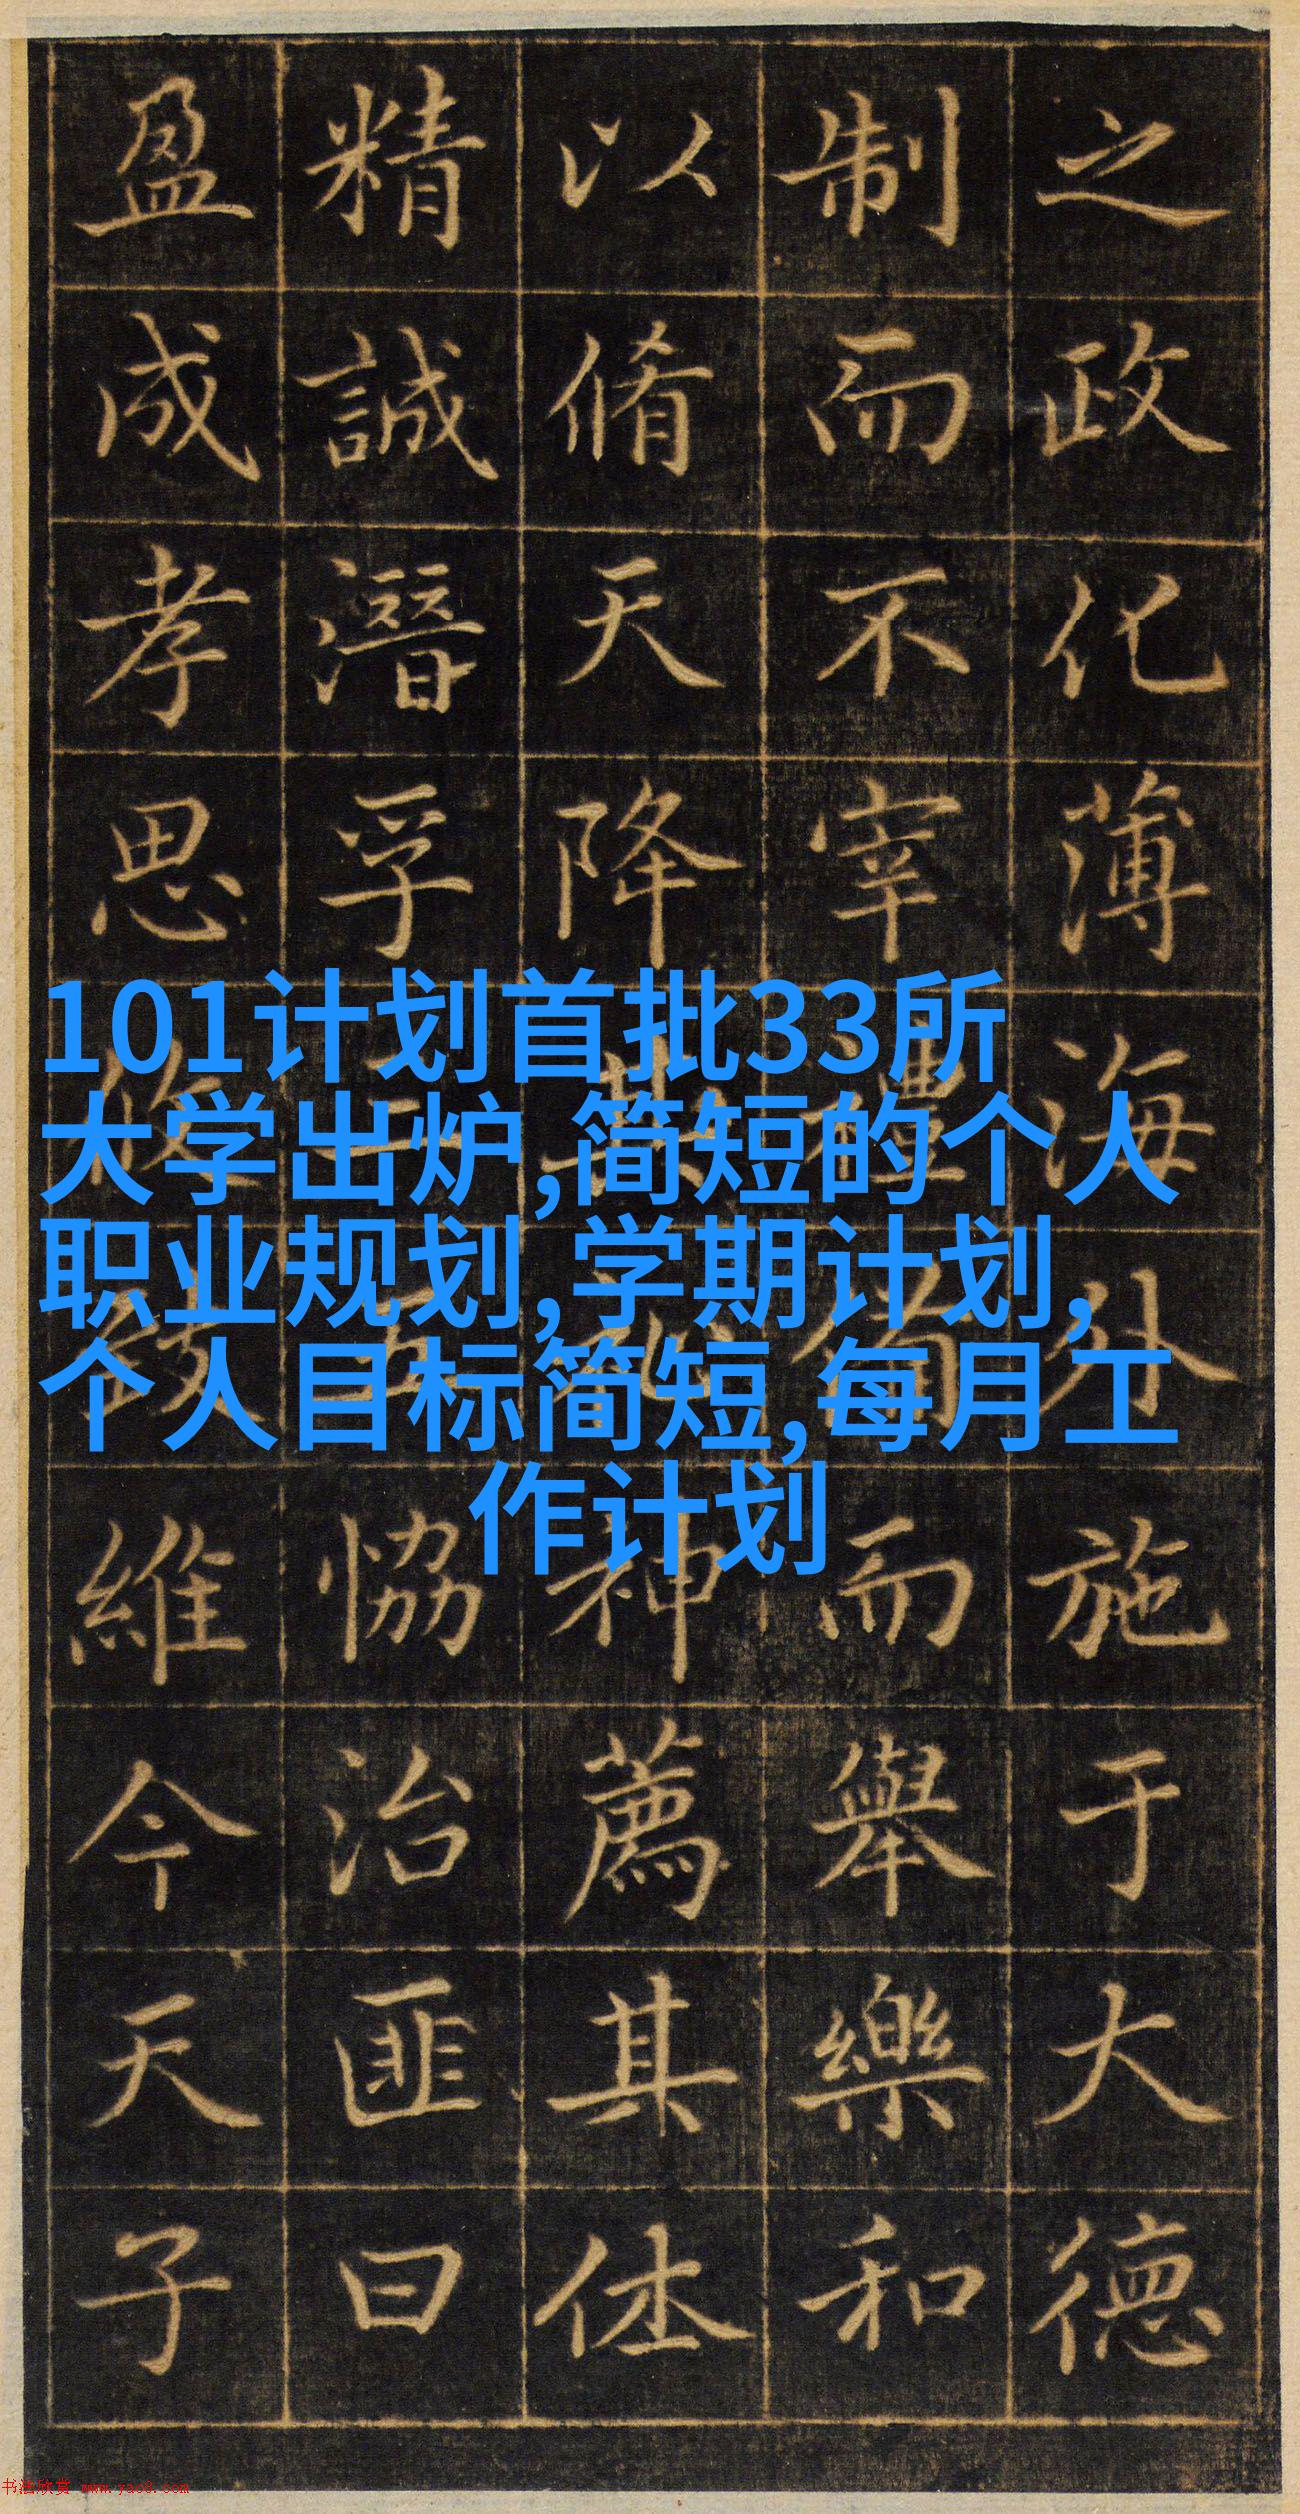 之政化薄海外施于大德
制而不宰禮備而舉樂和
以脩天降其神薦其休
精誠潛孚恊治匪曰
盈成孝思維今天子
101计划首批33所
大学出炉,简短的个人
职业规划,学期计划,
个人目标简短,每月工
作计划
书法欣赏 www.yac8.com